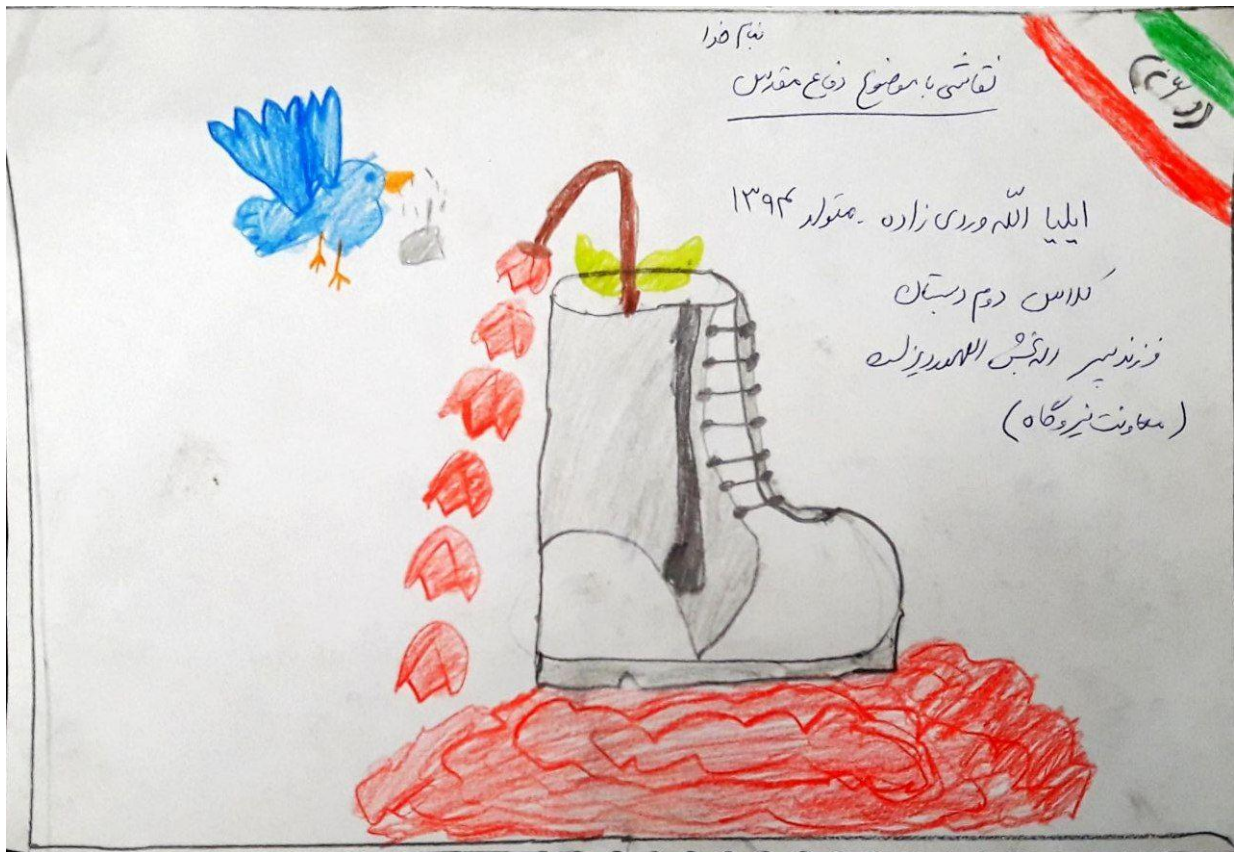 بنام خدا
نقاشی با موضوع دفاع مقدس
ایلیا الله وردی زاده - متولد ۱۳۹۴
کلاس دوم دبستان
فرزند پسر
(معاونت نیروگاه)